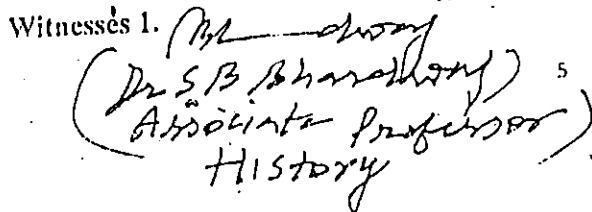 Witnesses 1.
(Dr S B Bhardwaj) s
Associate Professor)
History